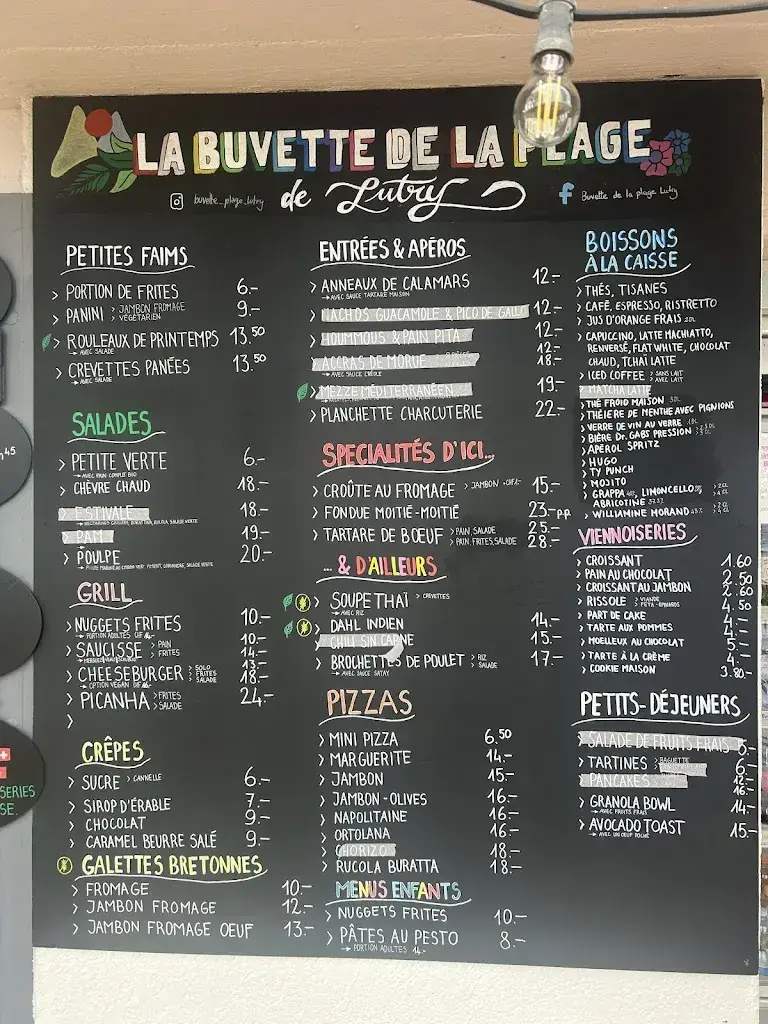 LA BUVETTE DE LA PLAGE
de Lutry
buvette_plage_lutry
Buvette de la plage Lutry
PETITES FAIMS
PORTION DE FRITES 6.-
PANINI > JAMBON FROMAGE 9.-
> VÉGÉTARIEN
ROULEAUX DE PRINTEMPS 13.50
→ AVEC SALADE
CREVETTES PANÉES 13.50
→ AVEC SALADE
SALADES
PETITE VERTE 6.-
→ AVEC PAIN COMPLET BIO
CHÈVRE CHAUD 18.-
ESTIVALE 18.-
PAM 19.-
POULPE 20.-
GRILL
NUGGETS FRITES 10.-
→ PORTION ADULTES
SAUCISSE > PAIN 10.-
> FRITES 14.-
CHEESEBURGER > SOLO 13.-
> FRITES 18.-
> SALADE
→ OPTION VEGAN
PICANHA > FRITES 24.-
> SALADE
>
CRÊPES
SUCRE > CANNELLE 6.-
SIROP D'ÉRABLE 7.-
CHOCOLAT 9.-
CARAMEL BEURRE SALÉ 9.-
GALETTES BRETONNES
FROMAGE 10.-
JAMBON FROMAGE 12.-
JAMBON FROMAGE OEUF 13.-
ENTRÉES & APÉROS
ANNEAUX DE CALAMARS 12.-
→ AVEC SAUCE TARTARE MAISON
NACHOS GUACAMOLE & PICO DE GALLO 12.-
HOUMMOUS & PAIN PITA 12.-
ACCRAS DE MORUE 12.-
18.-
→ AVEC SAUCE CRÉOLE
MEZZE MÉDITERRANÉEN 19.-
PLANCHETTE CHARCUTERIE 22.-
SPECIALITÉS D'ICI...
CROÛTE AU FROMAGE > JAMBON 15.-
FONDUE MOITIÉ-MOITIÉ 23.- p.p.
TARTARE DE BŒUF > PAIN, SALADE 25.-
> PAIN, FRITES, SALADE 28.-
... & D'AILLEURS
SOUPE THAÏ > CREVETTES
→ AVEC RIZ
DAHL INDIEN 14.-
CHILI SIN CARNE 15.-
BROCHETTES DE POULET > RIZ 17.-
> SALADE
→ AVEC SAUCE SATAY
PIZZAS
MINI PIZZA 6.50
MARGUERITE 14.-
JAMBON 15.-
JAMBON-OLIVES 16.-
NAPOLITAINE 16.-
ORTOLANA 16.-
CHORIZO 18.-
RUCOLA BURATTA 18.-
MENUS ENFANTS
NUGGETS FRITES 10.-
PÂTES AU PESTO 8.-
→ PORTION ADULTES 14.-
BOISSONS
À LA CAISSE
THÉS, TISANES
CAFÉ, ESPRESSO, RISTRETTO
JUS D'ORANGE FRAIS
CAPUCCINO, LATTE MACHIATTO,
RENVERSÉ, FLAT WHITE, CHOCOLAT
CHAUD, TCHAÏ LATTE
ICED COFFEE > SANS LAIT
> AVEC LAIT
MATCHA LATTE
THÉ FROID MAISON
THÉIÈRE DE MENTHE AVEC PIGNIONS
VERRE DE VIN AU VERRE
BIÈRE Dr. GABS PRESSION
APÉROL SPRITZ
HUGO
TY PUNCH
MOJITO
GRAPPA, LIMONCELLO
ABRICOTINE
WILLIAMINE MORAND
VIENNOISERIES
CROISSANT 1.60
PAIN AU CHOCOLAT 2.50
CROISSANT AU JAMBON 2.60
RISSOLE > VIANDE 4.50
> FETA-EPINARDS
PART DE CAKE 4.-
TARTE AUX POMMES 4.-
MOELLEUX AU CHOCOLAT 5.-
TARTE À LA CRÈME 4.-
COOKIE MAISON 3.80.-
PETITS-DÉJEUNERS
SALADE DE FRUITS FRAIS 6.-
TARTINES > BAGUETTE 6.-
PANCAKES 12.-
16.-
GRANOLA BOWL 14.-
→ AVEC FRUITS FRAIS
AVOCADO TOAST 15.-
→ AVEC UN OEUF POCHÉ
45
SERIES
SE.